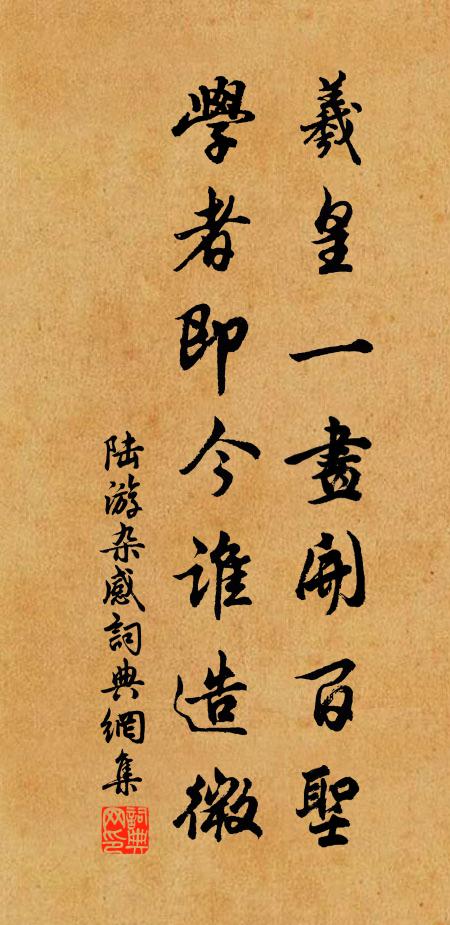 羲皇一畫開百聖
學者即今誰造微
陆游杂感詞典網集
詞典网印